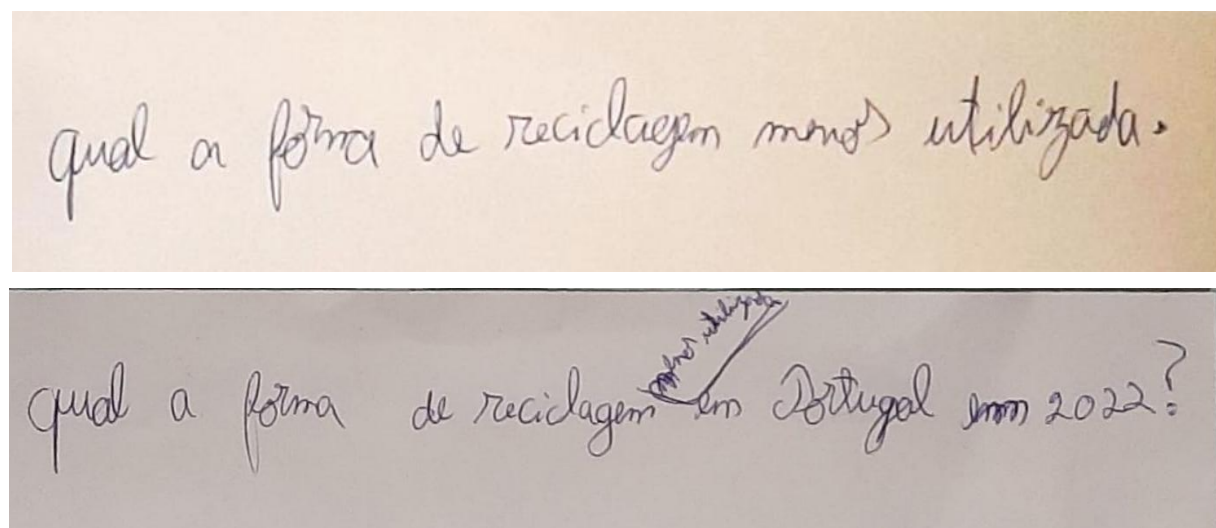 qual a forma de reciclagem menos utilizada.
qual a forma de reciclagem menos utilizada em Portugal em 2022?